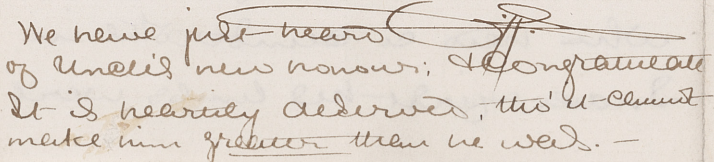 We have just heard
of Uncle's new honour; & congratulate
It is heartily deserved, tho' it cannot
make him greater than he was. —